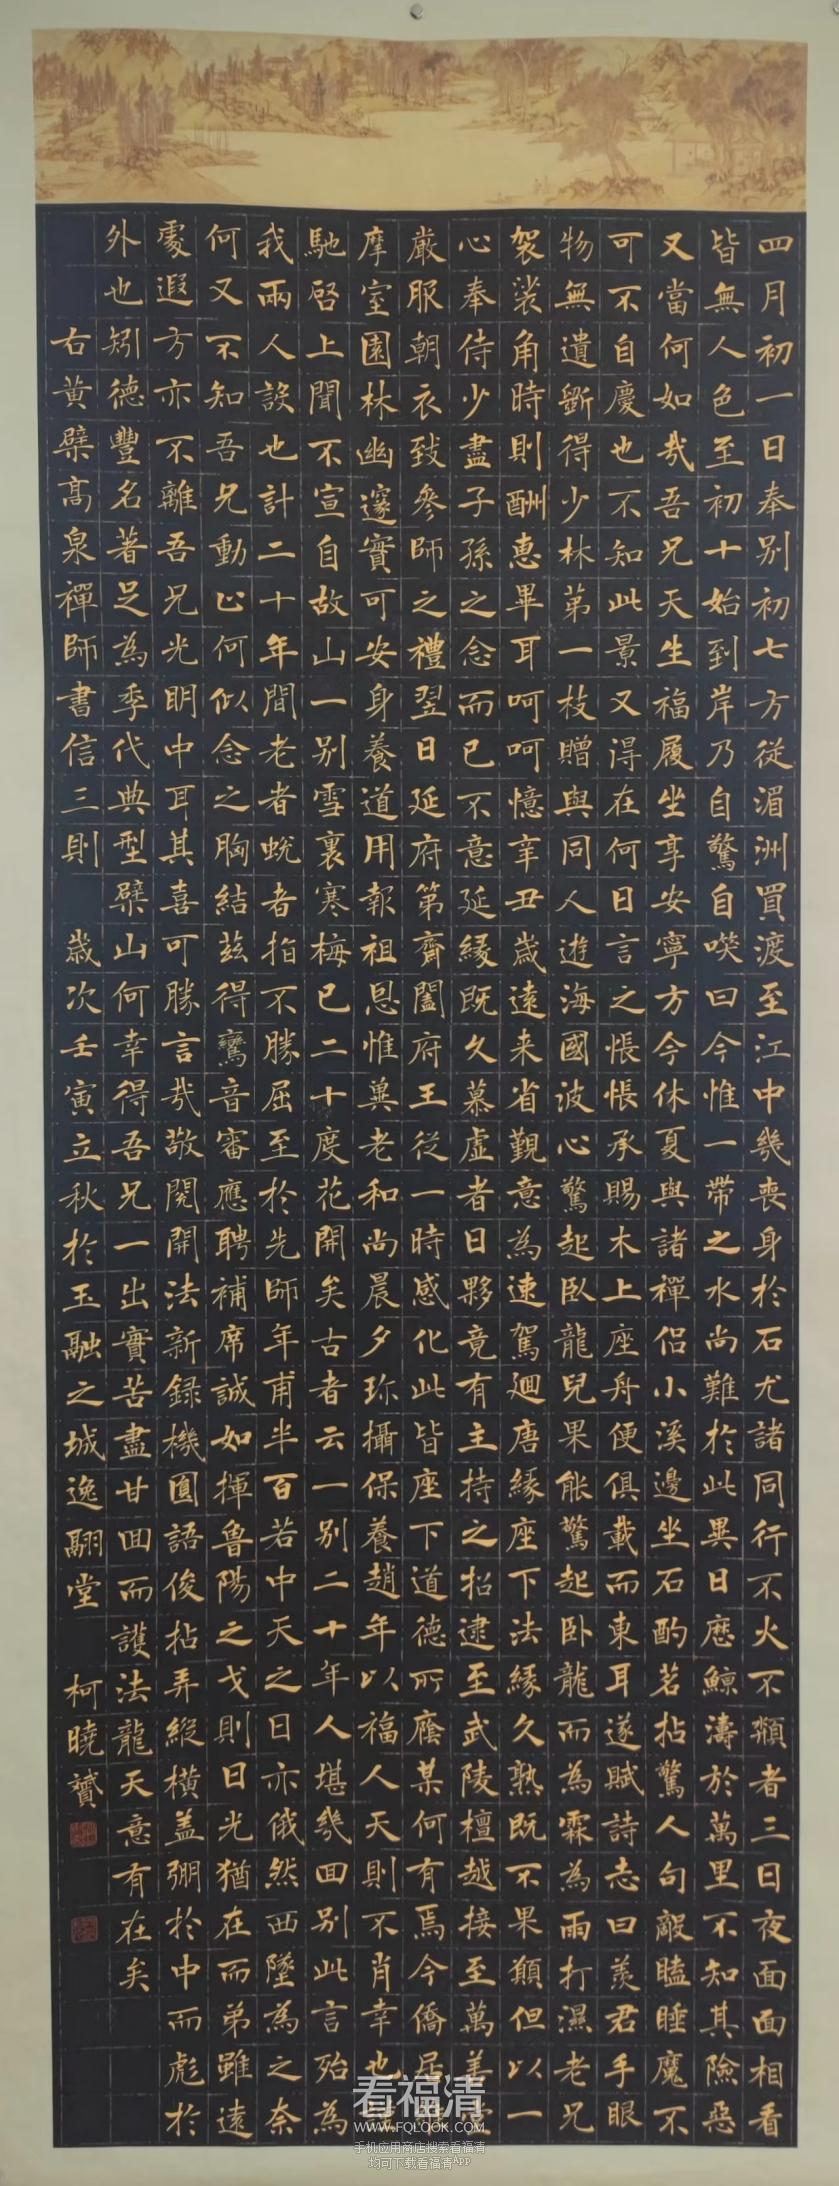 四月初一日奉别初七方從湄洲買渡至江中幾喪身於石尤諸同行不火不頮者三日夜面面相看
皆無人色至初十始到岸乃自驚自唉曰今惟一帶之水尚難於此異日歷鯨濤於萬里不知其險惡
又當何如哉吾兄天生福履坐享安寧方今休夏與諸禪侣小溪邊坐石酌茗拈驚人句敵瞌睡魔不
可不自慶也不知此景又得在何日言之悵悵承賜木上座舟便俱載而東耳遂賦詩志曰羨君手眼
物無遺斵得少林第一枝贈與同人遊海國波心驚起臥龍兒果能驚起卧龍而為霖為雨打濕老兄
袈裟角時則酬惠畢耳呵呵憶辛丑歲遠来省覲意為速駕廻唐緣座下法緣久熟既不果願但以一
心奉侍少盡子孫之念而已不意延緣既久慕虚者日夥竟有主持之招逮至武陵檀越接至萬善堂
嚴服朝衣致參師之禮翌日延府第齋闔府王從一時感化此皆座下道德所廕某何有焉今僑居
摩室園林幽邃實可安身養道用報祖恩惟兾老和尚晨夕珎攝保養趙年以福人天則不肖幸也
馳啓上聞不宣自故山一别雪裏寒梅已二十度花開矣古者云一别二十年人堪幾回别此言殆為
我兩人設也計二十年間老者蛻者指不勝屈至於先師年甫半百若中天之日亦俄然西墜為之奈
何又不知吾兄動止何似念之胸結茲得鸞音審應聘補席誠如揮魯陽之戈則日光猶在而弟雖遠
處遐方亦不離吾兄光明中耳其喜可勝言哉敬閱開法新録機圓語俊拈弄縱橫盖弸於中而彪於
外也矧德豐名著足為季代典型檗山何幸得吾兄一出實苦盡甘回而護法龍天意有在矣
右黄檗高泉禪師書信三則 歲次壬寅立秋於玉融之城逸翮堂 柯曉贇
看福清
WWW.FQLOOK.COM
手机应用商店搜索看福清
均可下载看福清App